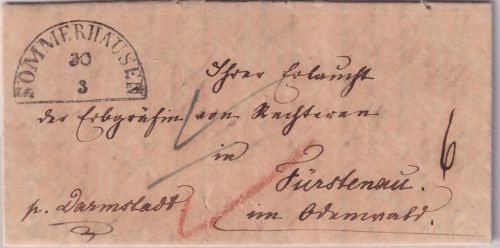 SOMMERHAUSEN
30
3
Ihrer Erlaucht
der Erbgräfin von Rechteren
in
Fürstenau.
im Odenwald.
p. Darmstadt
6